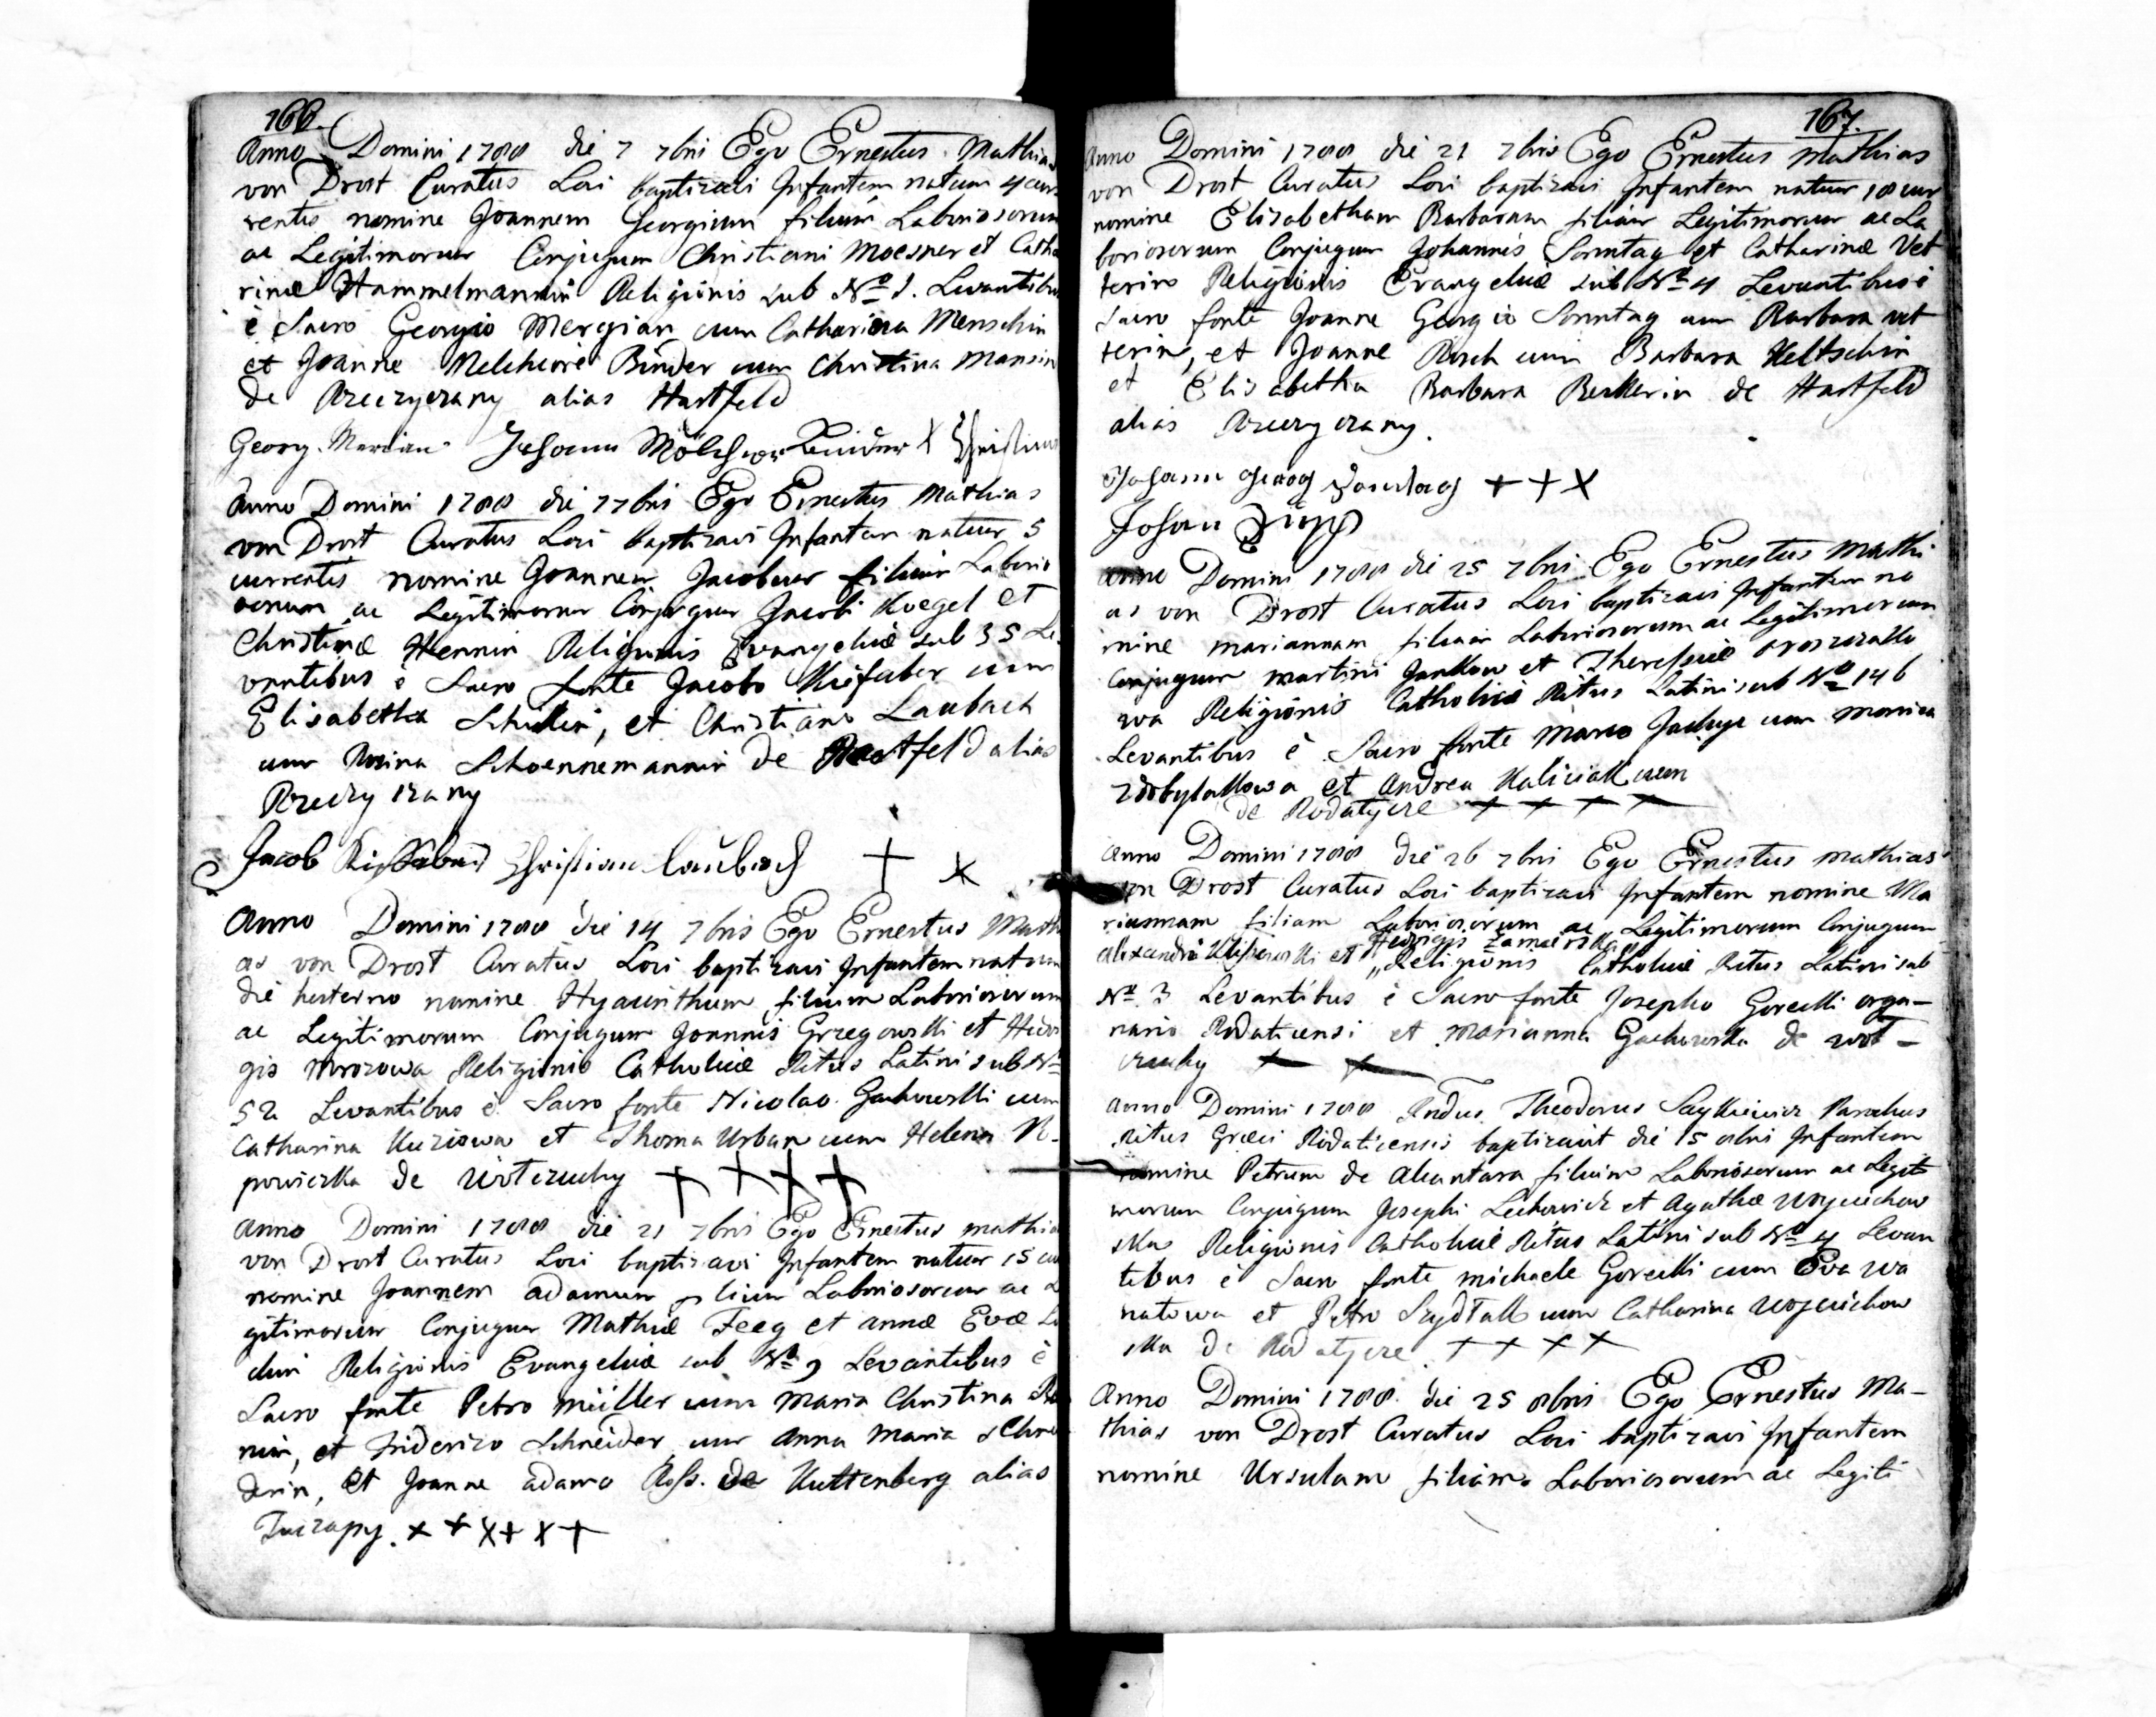 166.
Anno Domini 1788 die 7 7bri Ego Ernestus Mathias
von Drost Curatus Loci baptizavi Infantem natum 4 cur
rentis nomine Joannem Georgium filium Laboriosorum
ac Legitimorum Conjugum Christiani Moesner et Catha
rinæ Hammelmannin Religionis sub No 1. Levantibus
è Sacro Georgio Mergian cum Catharina Menschin
et Joanne Melchiore Binder cum Christina Mansin
de Rzeczyczany alias Hartfeld
Georg Merdian Johann Mölchior Binder X Christian
Anno Domini 1788 die 7 7bris Ego Ernestus Mathias
von Drost Curatus Loci baptizavi Infantem natum 5
currentis nomine Joannem Jacobum filium Laborio
sorum ac Legitimorum Conjugum Jacobi Koegel et
Christinæ Hennin Religionis Evangelicæ sub 35 Le
vantibus è Sacro fonte Jacobo Kiefaber cum
Elisabetha Schillin, et Christiano Laubach
cum Rosina Schoennemannin de Hartfeld alias
Rzeczyczany
Jacob Christian Laubach + X
Anno Domini 1788 die 14 7bris Ego Ernestus Math
as von Drost Curatus Loci baptizavi Infantem natum
die hesterno nomine Hyacinthum filium Laboriosorum
ac Legitimorum Conjugum Joannis Grzegowski et Hedvi
gis Mrozowa Religionis Catholicæ Ritus Latini sub No
52 Levantibus è Sacro fonte Nicolao Gachowski cum
Catharina Kuziowa et Thoma Urban cum Helena R-
powiczka de Wotczuchy + + + +
Anno Domini 1788 die 21 7bris Ego Ernestus Mathia
von Drost Curatus Loci baptizavi Infantem natum 15 cur
nomine Joannem Adamum filium Laboriosorum ac Le
gitimorum Conjugum Mathiæ Feeg et Annæ Evæ
Religionis Evangelicæ sub No 9 Levantibus è
Sacro fonte Petro Müller cum Maria Christina
nin, et Friderico Schneider cum Anna Maria Schnei
derin, et Joanne Adamo Ross. de Kuttenberg alias
Tuczapy. + + X + X +
167.
Anno Domini 1788 die 21 7bris Ego Ernestus Mathias
von Drost Curatus Loci baptizavi Infantem natum 18 cur
nomine Elisabetham Barbaram filiam Legitimorum ac La
boriosorum Conjugum Johannis Sonntag et Catharinæ Vet
terin Religionis Evangelicæ sub No 4 Levantibus è
Sacro fonte Joanne Georgio Sonntag cum Barbara Vet
terin, et Joanne Rosch cum Barbara Keltschin
et Elisabetha Barbara Beckerin de Hartfeld
alias Rzeczyczany.
Johann Georg Sondag + + X
Johan
Anno Domini 1788 die 25 7bri Ego Ernestus Mathi
as von Drost Curatus Loci baptizavi Infantem no
mine Mariannam filiam Laboriosorum ac Legitimorum
Conjugum Martini Jankow et Theressiæ
wa Religionis Catholicæ Ritus Latini sub No 146
Levantibus è Sacro fonte Marco cum Monica
Zdobylakowa et Andrea Kaliciak cum
de Rodatycze + + + +
Anno Domini 1788 die 26 7bri Ego Ernestus Mathias
von Drost Curatus Loci baptizavi Infantem nomine Ma
riannam filiam Laboriosorum ac Legitimorum Conjugum
Alexandri et Hedvigis Zamaerska Religionis Catholicæ Ritus Latini sub
No 3 Levantibus è Sacro fonte Josepho Gorecki orga-
nario Rodaticensi et Marianna Gachowska de Wot-
czuchy + +
Anno Domini 1788 Rndus Theodorus Saykiewicz Parochus
Ritus Græci Rodaticensis baptizavit die 15 8bri Infantem
nomine Petrum de Alcantara filium Laboriosorum ac Legiti
morum Conjugum Josephi Lechowicz et Agathæ Woyciechow
ska Religionis Catholicæ Ritus Latini sub No 4 Levan
tibus è Sacro fonte Michaele Gorecki cum Eva Wa
natowa et Petro Szydlak cum Catharina Woyciechow
ska de Rodatycze + + X X
Anno Domini 1788 die 25 8bris Ego Ernestus Ma-
thias von Drost Curatus Loci baptizavi Infantem
nomine Ursulam filiam Laboriosorum ac Legiti